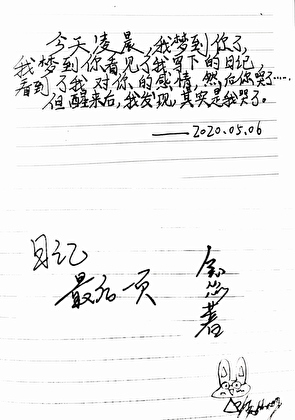 今天凌晨,我梦到你了,
我梦到你看见了我写下的日记,
看到了我对你的感情,然后你哭了……
但醒来后,我发现,其实是我哭了。
——2020.05.06
日记
最后一页
著